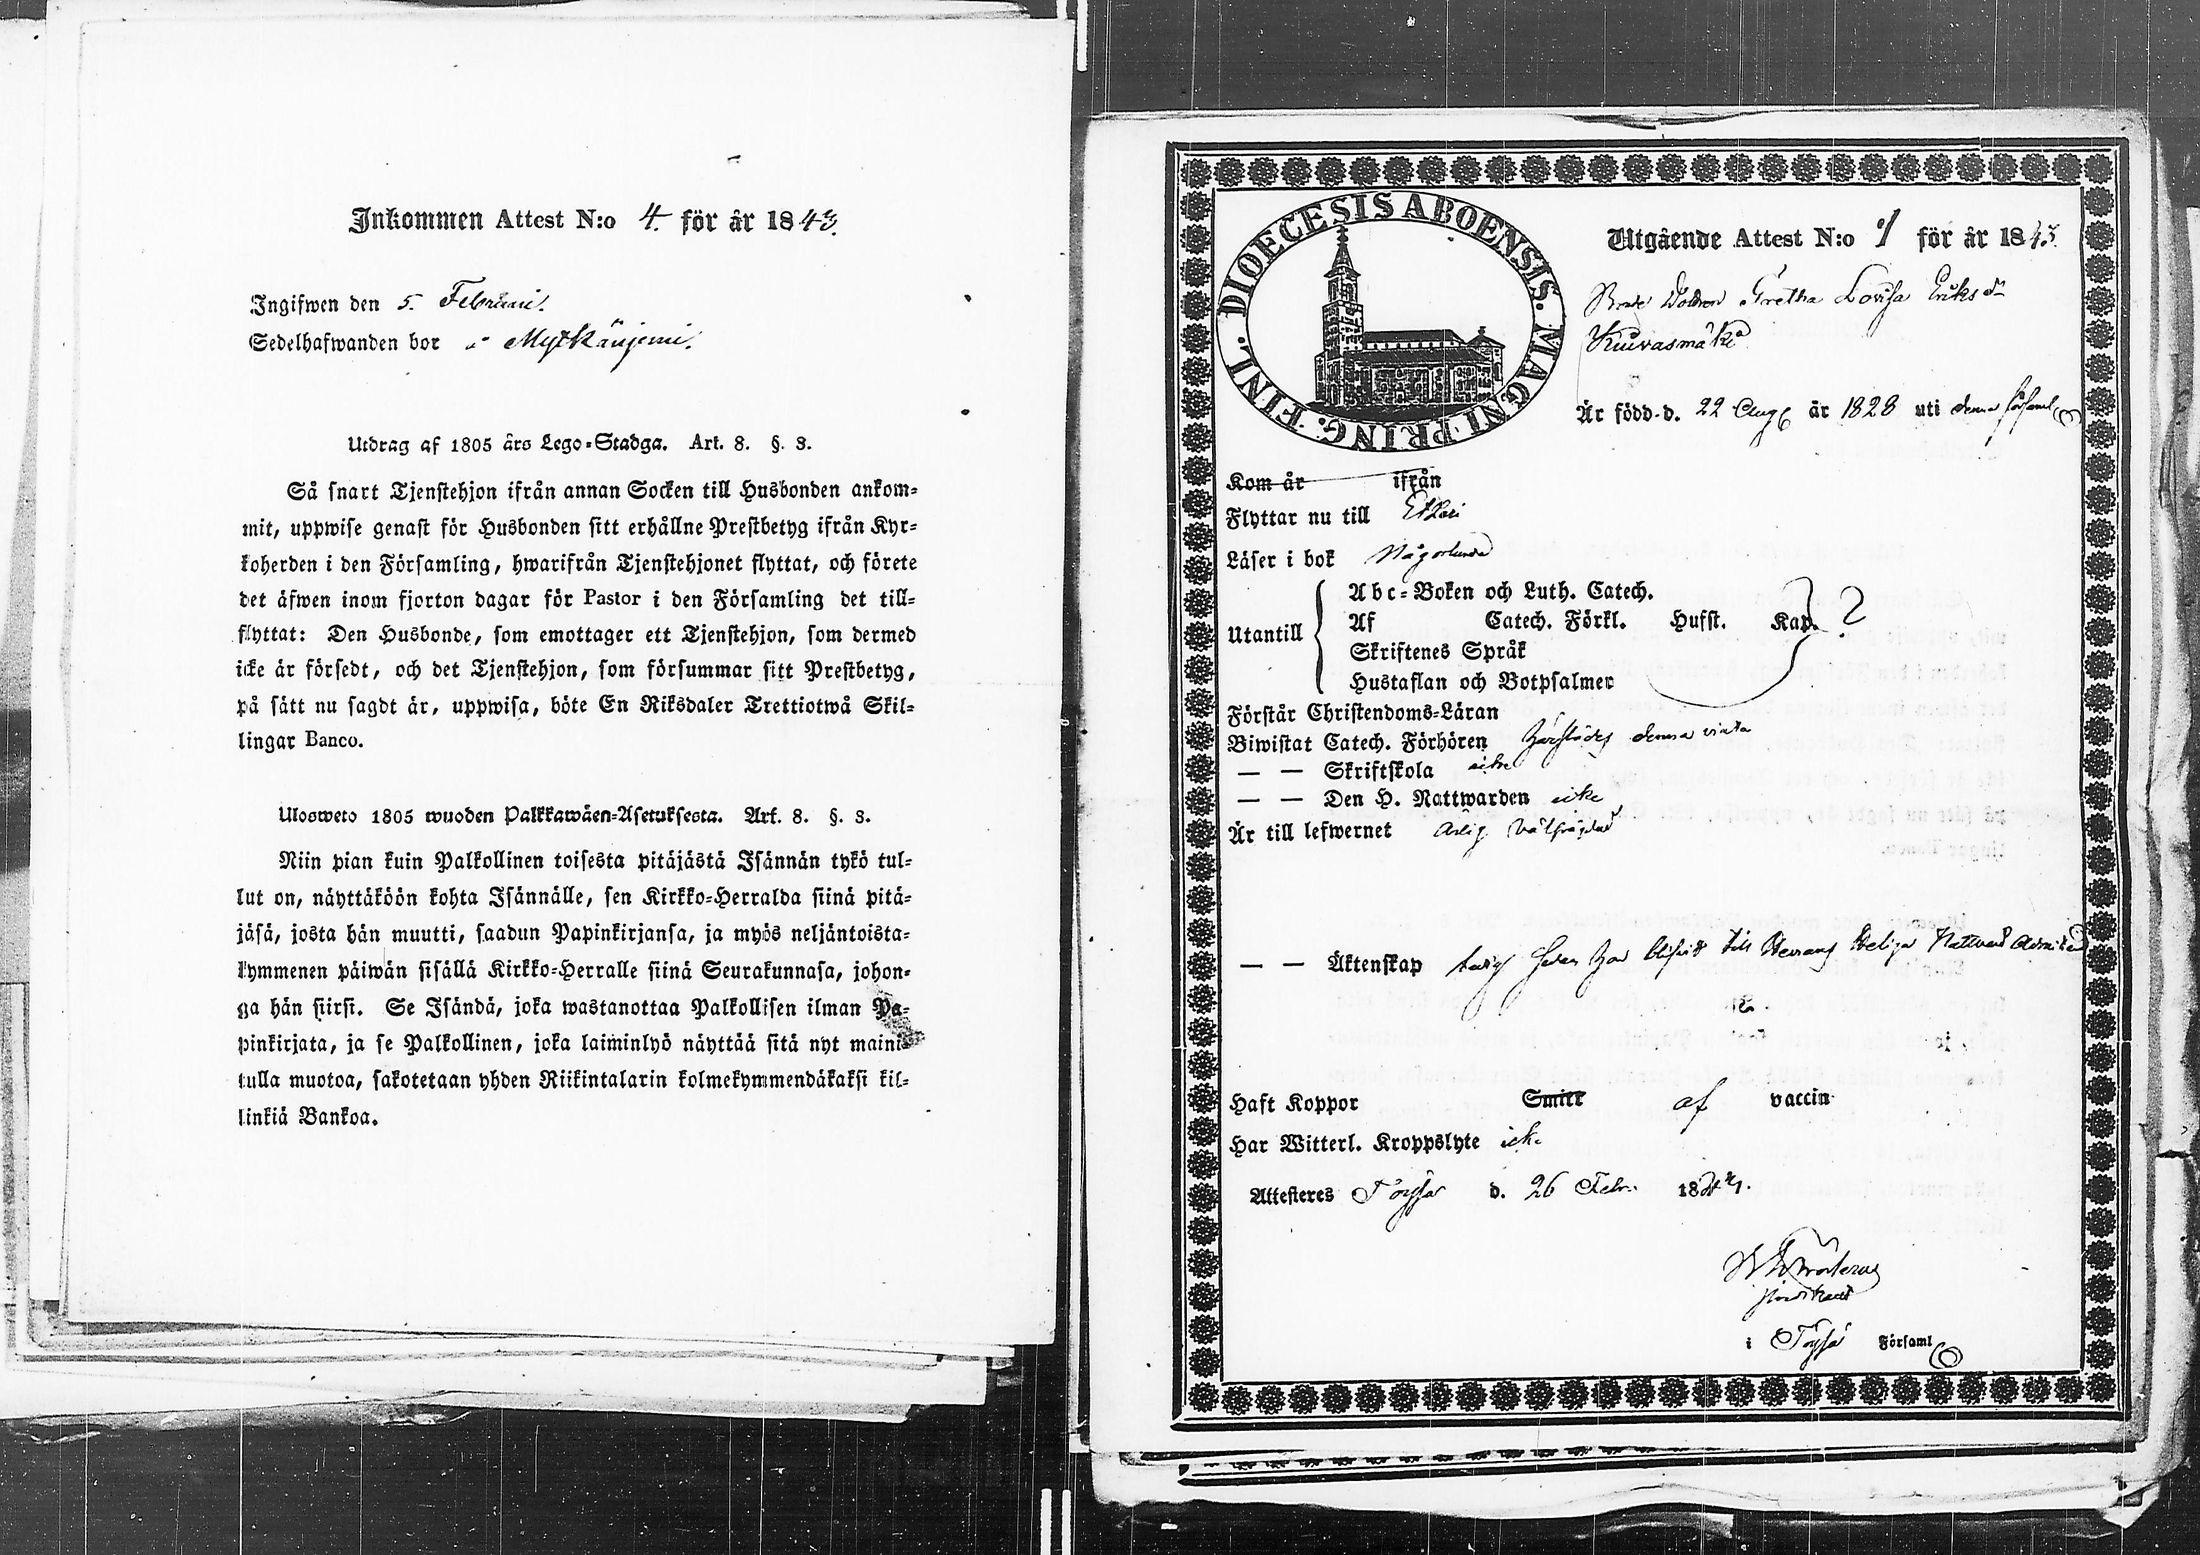 Inkommen Attest N:o 4. för år 1843.
Ingifwen den 5. Februari.
Sedelhafwanden bor i Myllkänjemi.
Utdrag af 1805 års Lego-Stadga. Art. 8. §. 3.
Så snart Tjenstehjon ifrån annan Socken till Husbonden ankom-
mit, uppwise genast för Husbonden sitt erhållne Prestbetyg ifrån Kyr-
koherden i den Församling, hwarifrån Tjenstehjonet flyttat, och förete
det äfwen inom fjorton dagar för Pastor i den Församling det till-
flyttat: Den Husbonde, som emottager ett Tjenstehjon, som dermed
icke är försedt, och det Tjenstehjon, som försummar sitt Prestbetyg,
på sätt nu sagdt är, uppwisa, böte En Riksdaler Trettiotwå Skil-
lingar Banco.
Ulosweto 1805 wuoden Palkkawäen-Asetuksesta. Art. 8. §. 3.
Niin pian kuin Palkollinen toisesta pitäjästä Isännän tykö tul-
lut on, näyttäköön kohta Isännälle, sen Kirkko-Herralda siinä pitä-
jäsä, josta hän muutti, saadun Papinkirjansa, ja myös neljäntoista-
kymmenen päiwän sisällä Kirkko-Herralle siinä Seurakunnasa, johon-
ga hän siirsi. Se Isändä, joka wastanottaa Palkollisen ilman Pa-
pinkirjata, ja se Palkollinen, joka laiminlyö näyttää sitä nyt maini-
tulla muotoa, sakotetaan yhden Riikintalarin kolmekymmendäkaksi kil-
linkiä Bankoa.
DIOECESIS ABOENSIS. MAGNI PRING. FINL.
Utgående Attest N:o 1 för år 1843.
Gretha Lovisa Eriksdr
Kuivasmäki
Är född d. 22 Aug år 1828 uti denna församl
Kom år ifrån
Flyttar nu till Etseri
Läser i bok någorlunda
Abc-Boken och Luth. Catech.
Utantill Af Catech. Förkl. Husst. Kap. ?
Skriftenes Språk
Hustaflan och Botpsalmer
Förstår Christendoms-Läran
Biwistat Catech. Förhören härstädes denna vinter
— — Skriftskola icke
— — Den H. Nattwarden icke
Är till lefwernet ärlig välfrägdad
— — Äktenskap till Herrans Heliga Nattvard
Haft Koppor Smitt af vaccin
Har Witterl. Kroppslyte icke
Attesteres Töysä d. 26 Febr. 18
i Töysä Församl